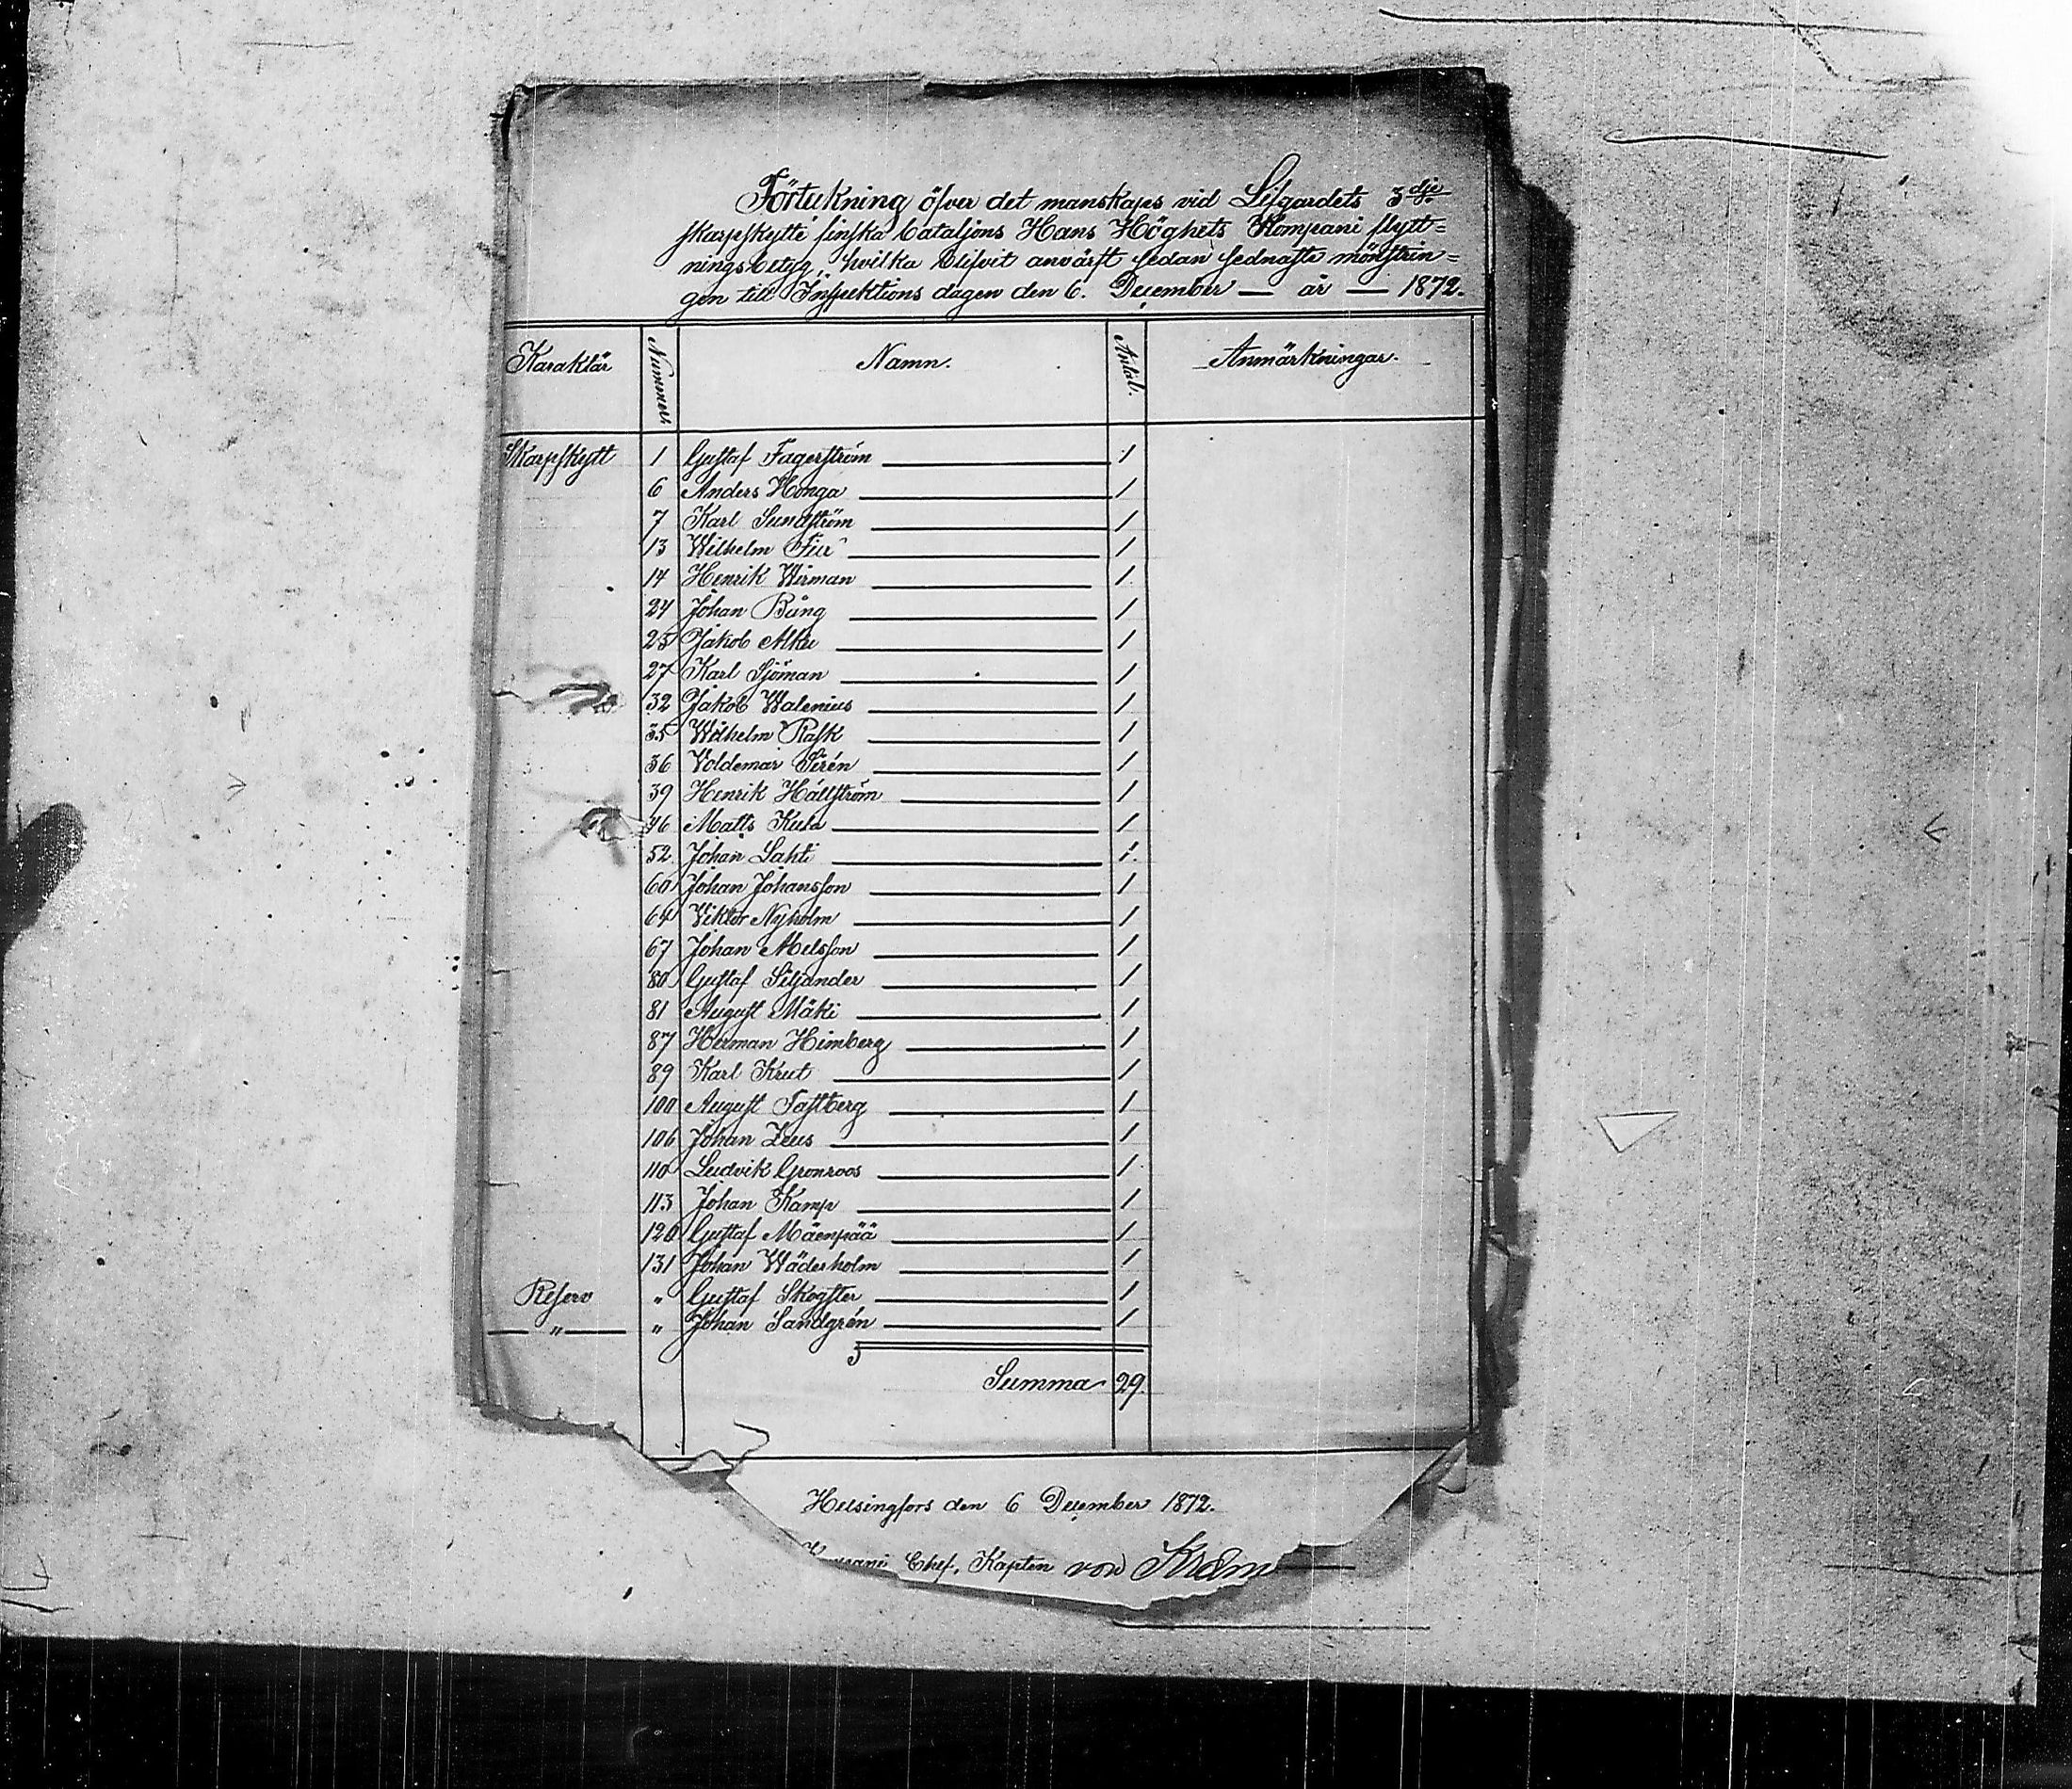 Förteckning öfver det manskaps vid Lifgardets 3dje
skarpskytte finska bataljons Hans Höghets Kompani flytt=
ningsbetyg, hvilka blifvit anvärft sedan sednaste mönstrin=
gen till Inspektions dagen den 6. December — år — 1872.
Karaktär Nummer Namn. Antal. Anmärkningar.
Skarpskytt 1 Gustaf Fagerström 1
6 Anders Honga 1
7 Karl Sundström 1
13 Wilhelm 1
14 Henrik Wirman 1
24 Johan Bång 1
25 Jakob 1
27 Karl Sjöman 1
32 Jakob Walenius 1
35 Wilhelm Rask 1
36 Voldemar Sirén 1
39 Henrik Hällström 1
46 Matts Kula 1
52. Johan Lahti 1.
60 Johan Johansson 1
64 Viktor Nyholm 1
67 Johan Melsson 1
80 Gustaf Siljander 1
81 August Mäki 1
87 Herman Himberg 1
89 Karl Krut 1
100 August Tastberg 1
106 Johan Zeus 1
110 Ludvik Grönroos 1
113 Johan Kamp 1
120 Gustaf Mäenpää 1
131 Johan Wäderholm 1
Reserv " Gustaf Skogster 1
— " — " Johan Sandgrén 1
Summa 29.
Helsingfors den 6 December 1872.
Kompani Chef, Kapten von